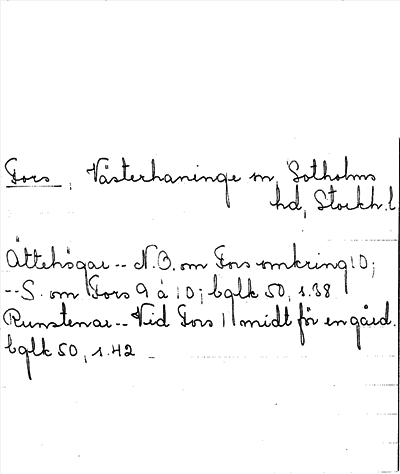 Fors, Västerhaninge sn, Sotholms
hd, Stockh. l.
Ättehögar -- N.O. om Fors omkring 10;
-- S. om Fors 9 à 10; bglk 50, s. 38
Runstenar -- Vid Fors 1 midt för en gård.
bglk 50, s. 42